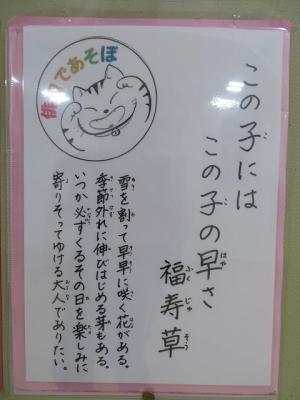 俳句であそぼ
この子には
この子の早さ
福寿草
雪を割って早早に咲く花がある。
季節外れに伸びはじめる芽もある。
いつか必ずくるその日を楽しみに
寄りそってゆける大人でありたい。